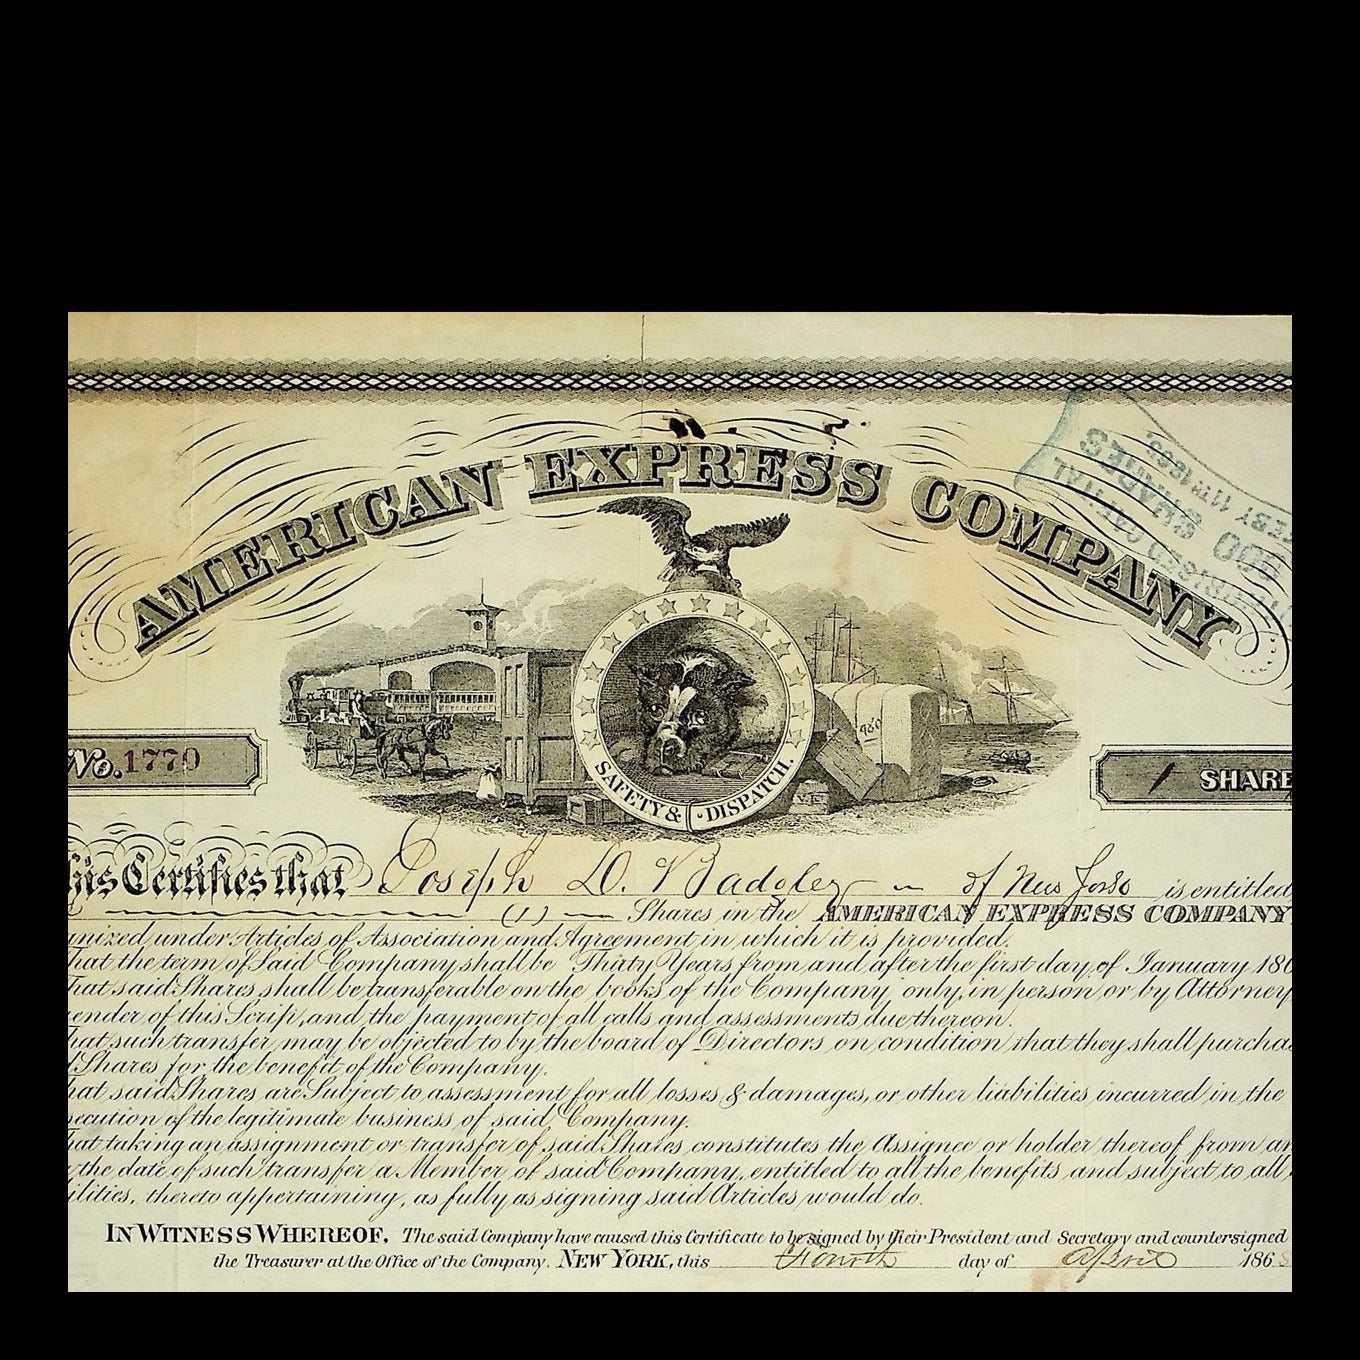 AMERICAN EXPRESS COMPANY
SAFETY & DISPATCH.
No. 1770
1 SHARE
his Certifies that Joseph D. Badgley of New York is entitled
(1) Shares in the AMERICAN EXPRESS COMPANY
anized under Articles of Association and Agreement in which it is provided.
hat the term of Said Company shall be Thirty Years from and after the first day of January 186
hat said Shares shall be transferable on the books of the Company only, in person or by Attorney
ender of this Scrip, and the payment of all calls and assessments due thereon.
hat such transfer may be objected to by the board of Directors on condition that they shall purcha
d Shares for the benefit of the Company.
hat said Shares are Subject to assessment for all losses & damages, or other liabilities incurred in the
ecution of the legitimate business of said Company.
hat taking an assignment or transfer of said Shares constitutes the Assignee or holder thereof from an
the date of such transfer a Member of said Company, entitled to all the benefits and subject to all
ilities, thereto appertaining, as fully as signing said Articles would do.
IN WITNESS WHEREOF, The said Company have caused this Certificate to be signed by their President and Secretary and countersigned
the Treasurer at the Office of the Company, NEW YORK, this Fourth day of April 186